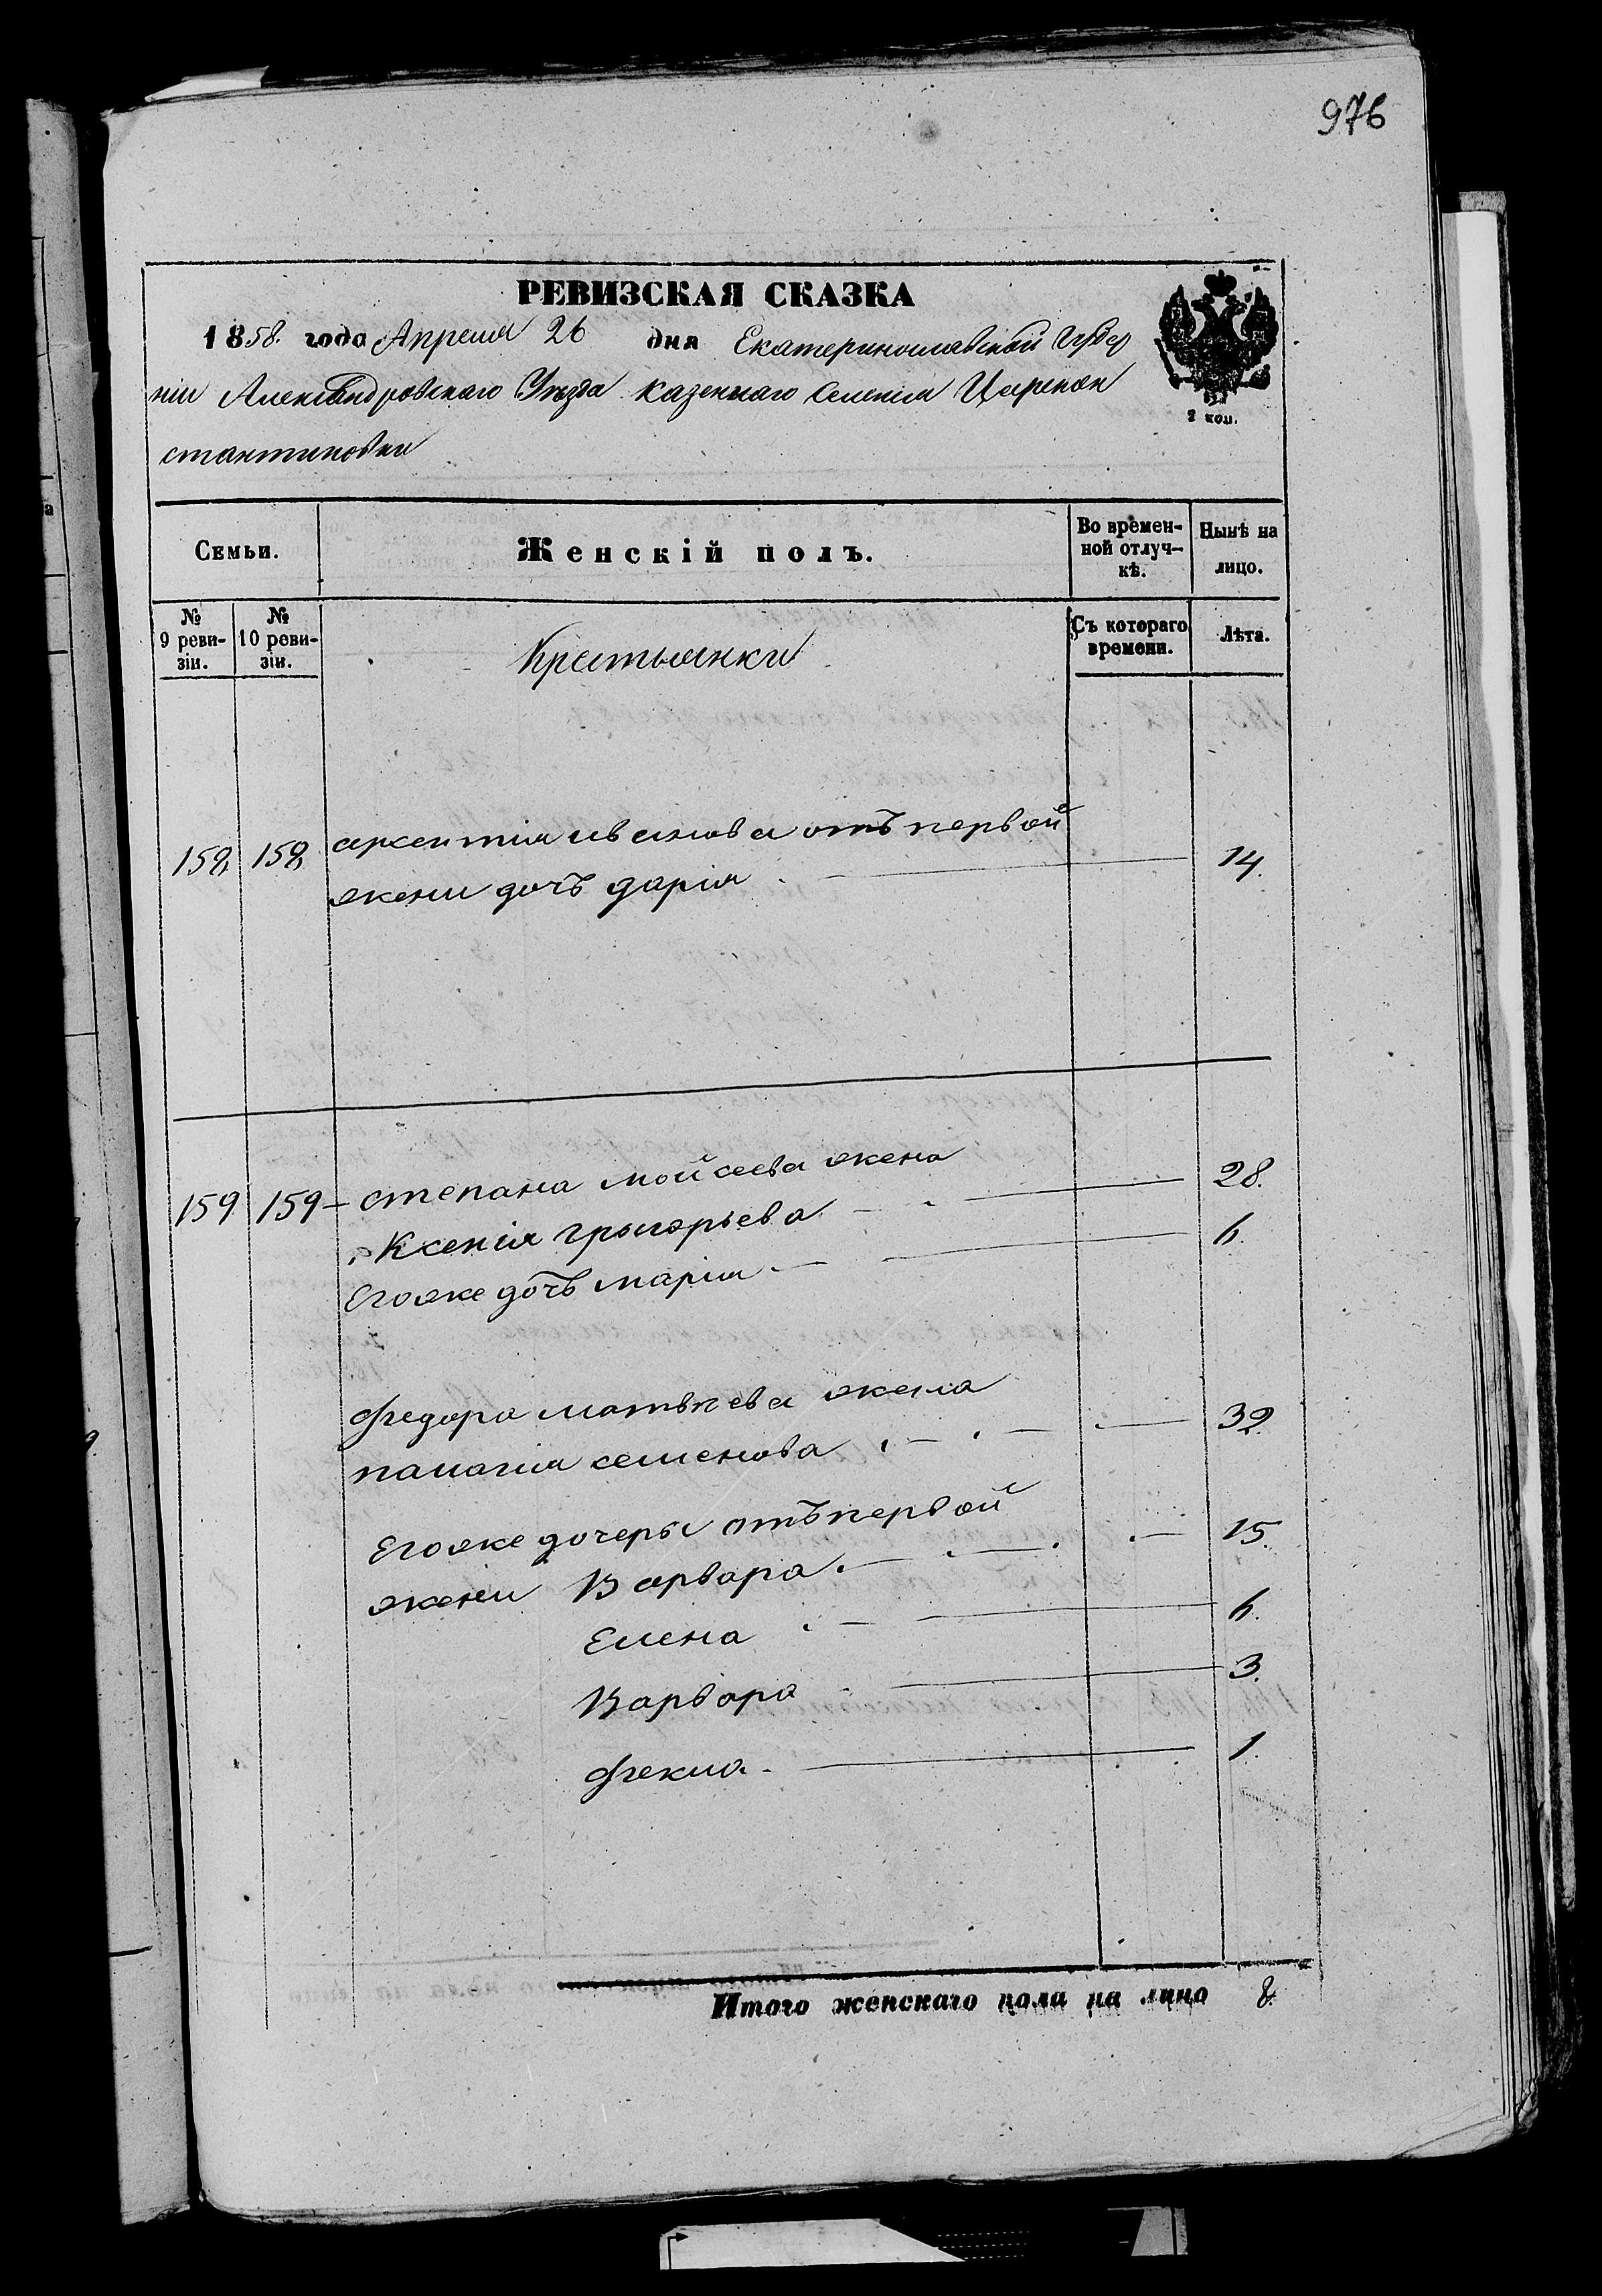 976
РЕВИЗСКАЯ СКАЗКА
1858. года Апреля 26 дня Екатеринославской Губер
ніи Александровскаго Уѣзда казеннаго селенія Царекон
стантиновки
2 коп.
Семьи.
Женскій полъ.
Во времен-
ной отлуч-
кѣ.
Нынѣ на
лицо.
№
9 реви-
зіи.
№
10 реви-
зіи.
Крестьянки
Съ котораго
времени.
Лѣта.
158 158 арсентія иванова отъ первой
жени дочь дарія 14.
159 159 степана мойсеева жена
Ксенія григорьева 28.
Егоже дочь марія 6.
Федора матвѣева жена
палагія семенова 32.
Егоже дочеры отъ первой
жени Варвара 15.
Елена 6.
Варвара 3.
Фекла 1.
Итого женскаго пола на лицо 8.